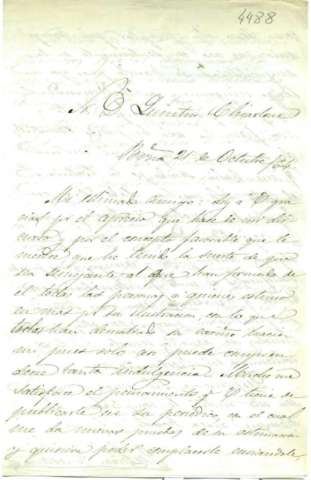 4488
S. D. Quintin Chiarlone
Roma 21 de Octubre
Mi estimado amigo: doy a V. gra
cias por el aprecio que hace de mi dis
curso, por el concepto favorable que le
merece que he tenido la suerte de que
sea semejante al que han formado de
el todas las personas a quienes estimo
en mas por su ilustracion, en lo que
todos han demostrado su cariño hacia
mi pues solo asi puede compren
derse tanta indulgencia. Mucho me
satisface el pensamiento q. V. tiene de
publicarle en su periodico en el cual
me da nuevas pruebas de su estimacion
y quisiera poder complacerle enviandole